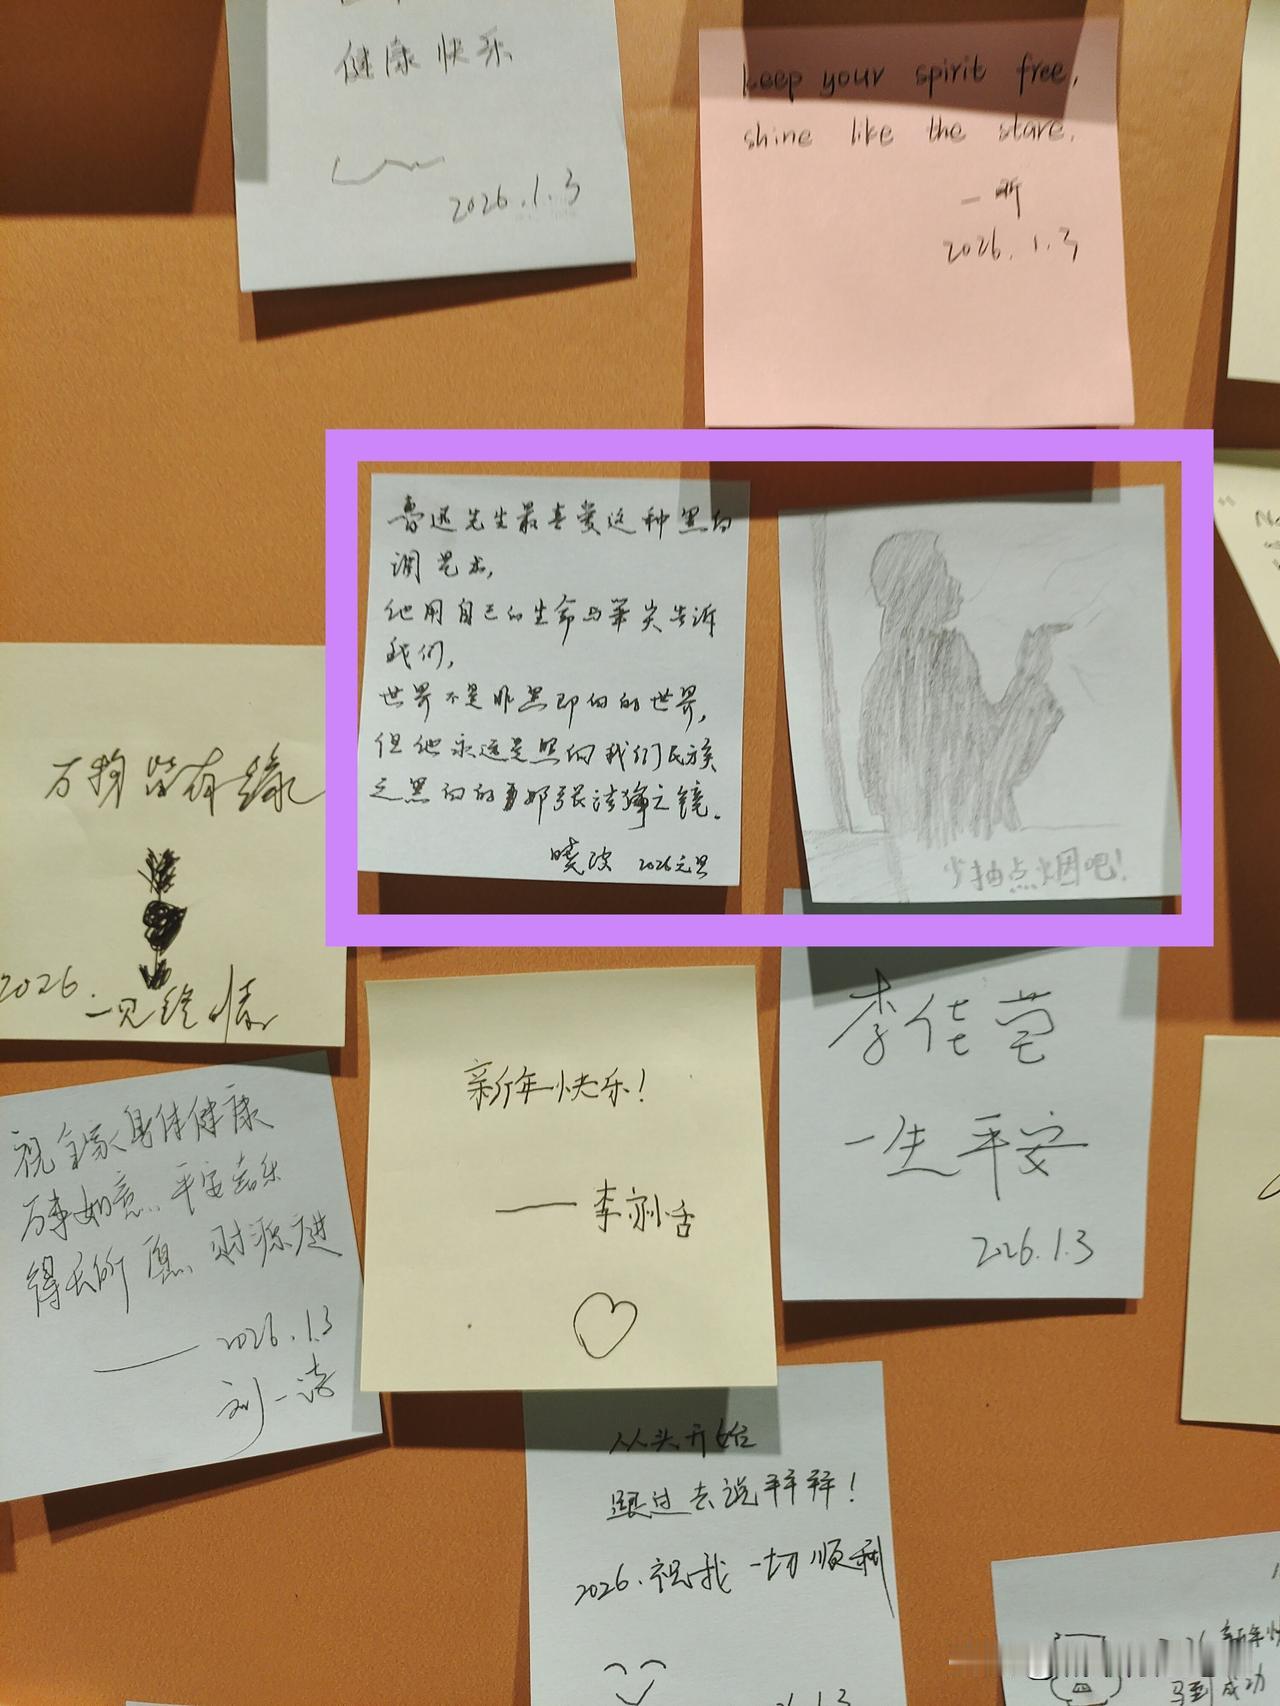 健康快乐
2026.1.3
keep your spirit free,
shine like the stare.
一昕
2026.1.3
鲁迅先生最喜爱这种黑白
调艺术,
他用自己的生命与笔尖告诉
我们,
世界不是非黑即白的世界,
但他永远是照向我们民族
之黑白的
之镜。
晓波 2026元旦
少抽点烟吧!
万物皆有缘
2026.
一见终情
新年快乐!
李佳莹
一生平安
2026.1.3
祝全家身体健康
万事如意、平安喜乐
得天所愿、财源广进
2026.1.3
刘一诗
从头开始
跟过去说拜拜!
2026.祝我一切顺利
新年快
马到成功